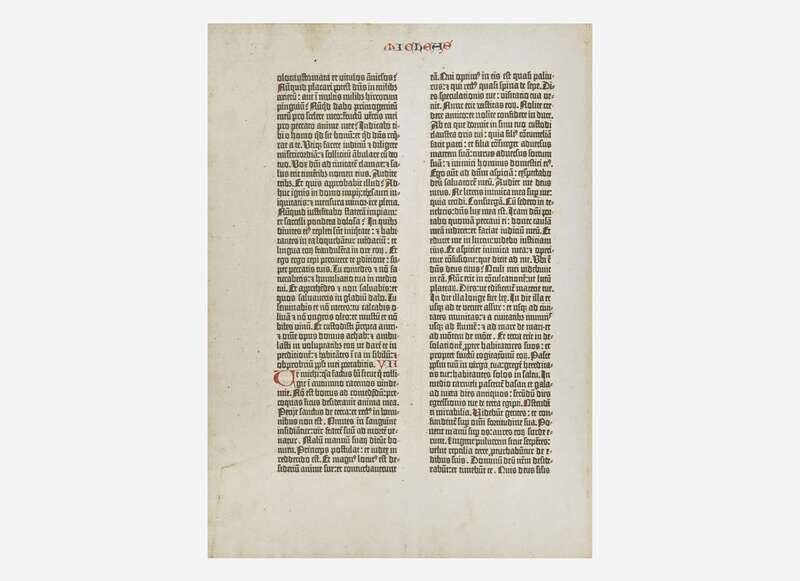 MICHEAS
olocaustomata et vitulos anniculos?
Nūquid placari potest dūs in milibꝫ
arietū: aut ī multis milibꝫ hircorum
pinguiū? Nūqd dabo primogenitū
meū pro scelere meo: fructū ventris mei
pro peccato anime mee? Indicabo ti-
bi o homo qd sit bonū: et qd dūs requi-
rat a te. Utiqꝫ facere iudiciū ⁊ diligere
misericordiā: ⁊ sollicitū ābulare cū deo
tuo. Vox dūi ad civitatē clamat: ⁊ sa-
lus erit timētibꝫ nomen eius. Audite
tribꝫ. Et quis approbabit illud? Ad-
huc ignis in domo impij: thesauri in-
iquitatis: ⁊ mensura minor ire plena.
Nūquid iustificabo staterā impiam:
et saccelli pondera dolosa? In quibꝫ
divites eiꝰ repleti sūt iniquitate: ⁊ habi-
tantes in ea loquebātur mēdaciū: et
lingua eoꝝ fraudulēta in ore eoꝝ. Et
ego ergo cepi percutere te pditione: su-
per peccatis tuis. Tu comedes ⁊ nō sa-
turaberis: ⁊ humiliatio tua in medio
tui. Et apprehēdes ⁊ non salvabis: et
quos salvaveris in gladiū dabo. Tu
seminabis et nō metes: tu calcabis o-
livā ⁊ nō ungeris oleo: et mustū et nō
bibes vinū. Et custodisti precepta amri-
⁊ omē opus domus achab: ⁊ ambu-
lasti in voluptatibꝫ eoꝝ ut darē te in
perditionē: ⁊ habitātes ī ea in sibilū: ⁊
obprobriū ppli mei portabitis. VII
Ue michi: qa factus sū sicut q colli-
git ī autumno racemos vinde-
mie. Nō est botrus ad comedēdū: pre-
coquas ficus desideravit anima mea.
Periit sanctus de terra: et rectꝰ in homi-
nibus non est. Omnes in sanguine
insidiātur: vir fratrē suū ad mortē ve-
natur. Malū manuū suaꝝ dicūt bo-
num. Princeps postulat: et iudex in
reddendo est. Et magnꝰ locutꝰ est de-
sideriū anime sue: et conturbaverunt
eā. Qui optimꝰ in eis est quasi paliu-
rus: ⁊ qui rectꝰ quasi spina de sepe. Di-
es speculationis tue: visitatio tua ve-
nit. Nunc erit vastitas eoꝝ. Nolite cre-
dere amico: et nolite confidere in duce.
Ab ea que dormit in sinu tuo custodi
claustra oris tui: quia filiꝰ cōtumeliā
facit patri: et filia cōsurget adversus
matrem suā: nurus adversus socrum
suā: ⁊ inimici hominis domestici eiꝰ.
Ego aūt ad dūm aspiciā: exspectabo
deū salvatorē meū. Audiet me deus
meus. Ne leteris inimica mea sup me:
quia cecidi. Consurgā. Cū sedero in te-
nebris: dūs lux mea est. Iram dūi por-
tabo quoniā peccavi ei: donec causā
meā iudicet: et faciat iudiciū meū. Et
educet me in lucem: videbo iusticiam
eius. Et aspiciet inimica mea: ⁊ operi-
etur cōfusione: que dicit ad me. Ubi ē
dūs deus tuus? Oculi mei videbunt
in eā. Nūc erit in cōculcationē: ut lutū
platearū. Dies: ut edificent macerie tue.
In die illa longe fiet lex. In die illa et
usqꝫ ad te veniet assur: et usqꝫ ad civi-
tates munitas: ⁊ a civitatibꝫ munitꝭ
usqꝫ ad flumē: ⁊ ad mare de mari: et
ad mōtem de mōte. Et terra erit in de-
solationē ꝓpter habitatores suos: et
propter fructū cogitationū eoꝝ. Pasce
pplm tuū in virga tua: gregē heredita-
tis tue: habitantes solos in saltu. In
medio carmeli pascent̄ basan et galā-
ad iuxta dies antiquos: secūdū dies
egressionis tue de terra egipti. Ostendā
ei mirabilia. Videbūt gentes: et con-
fundent̄ sup omī fortitudine sua. Po-
nent manū sup os: aures eoꝝ surde e-
runt. Lingent pulverem sicut serpētes:
velut reptilia terre ꝓturbabūt̄ de e-
dibus suis. Dominū deū nr̄m deside-
rabūt: et timebūt te. Quis deus silis